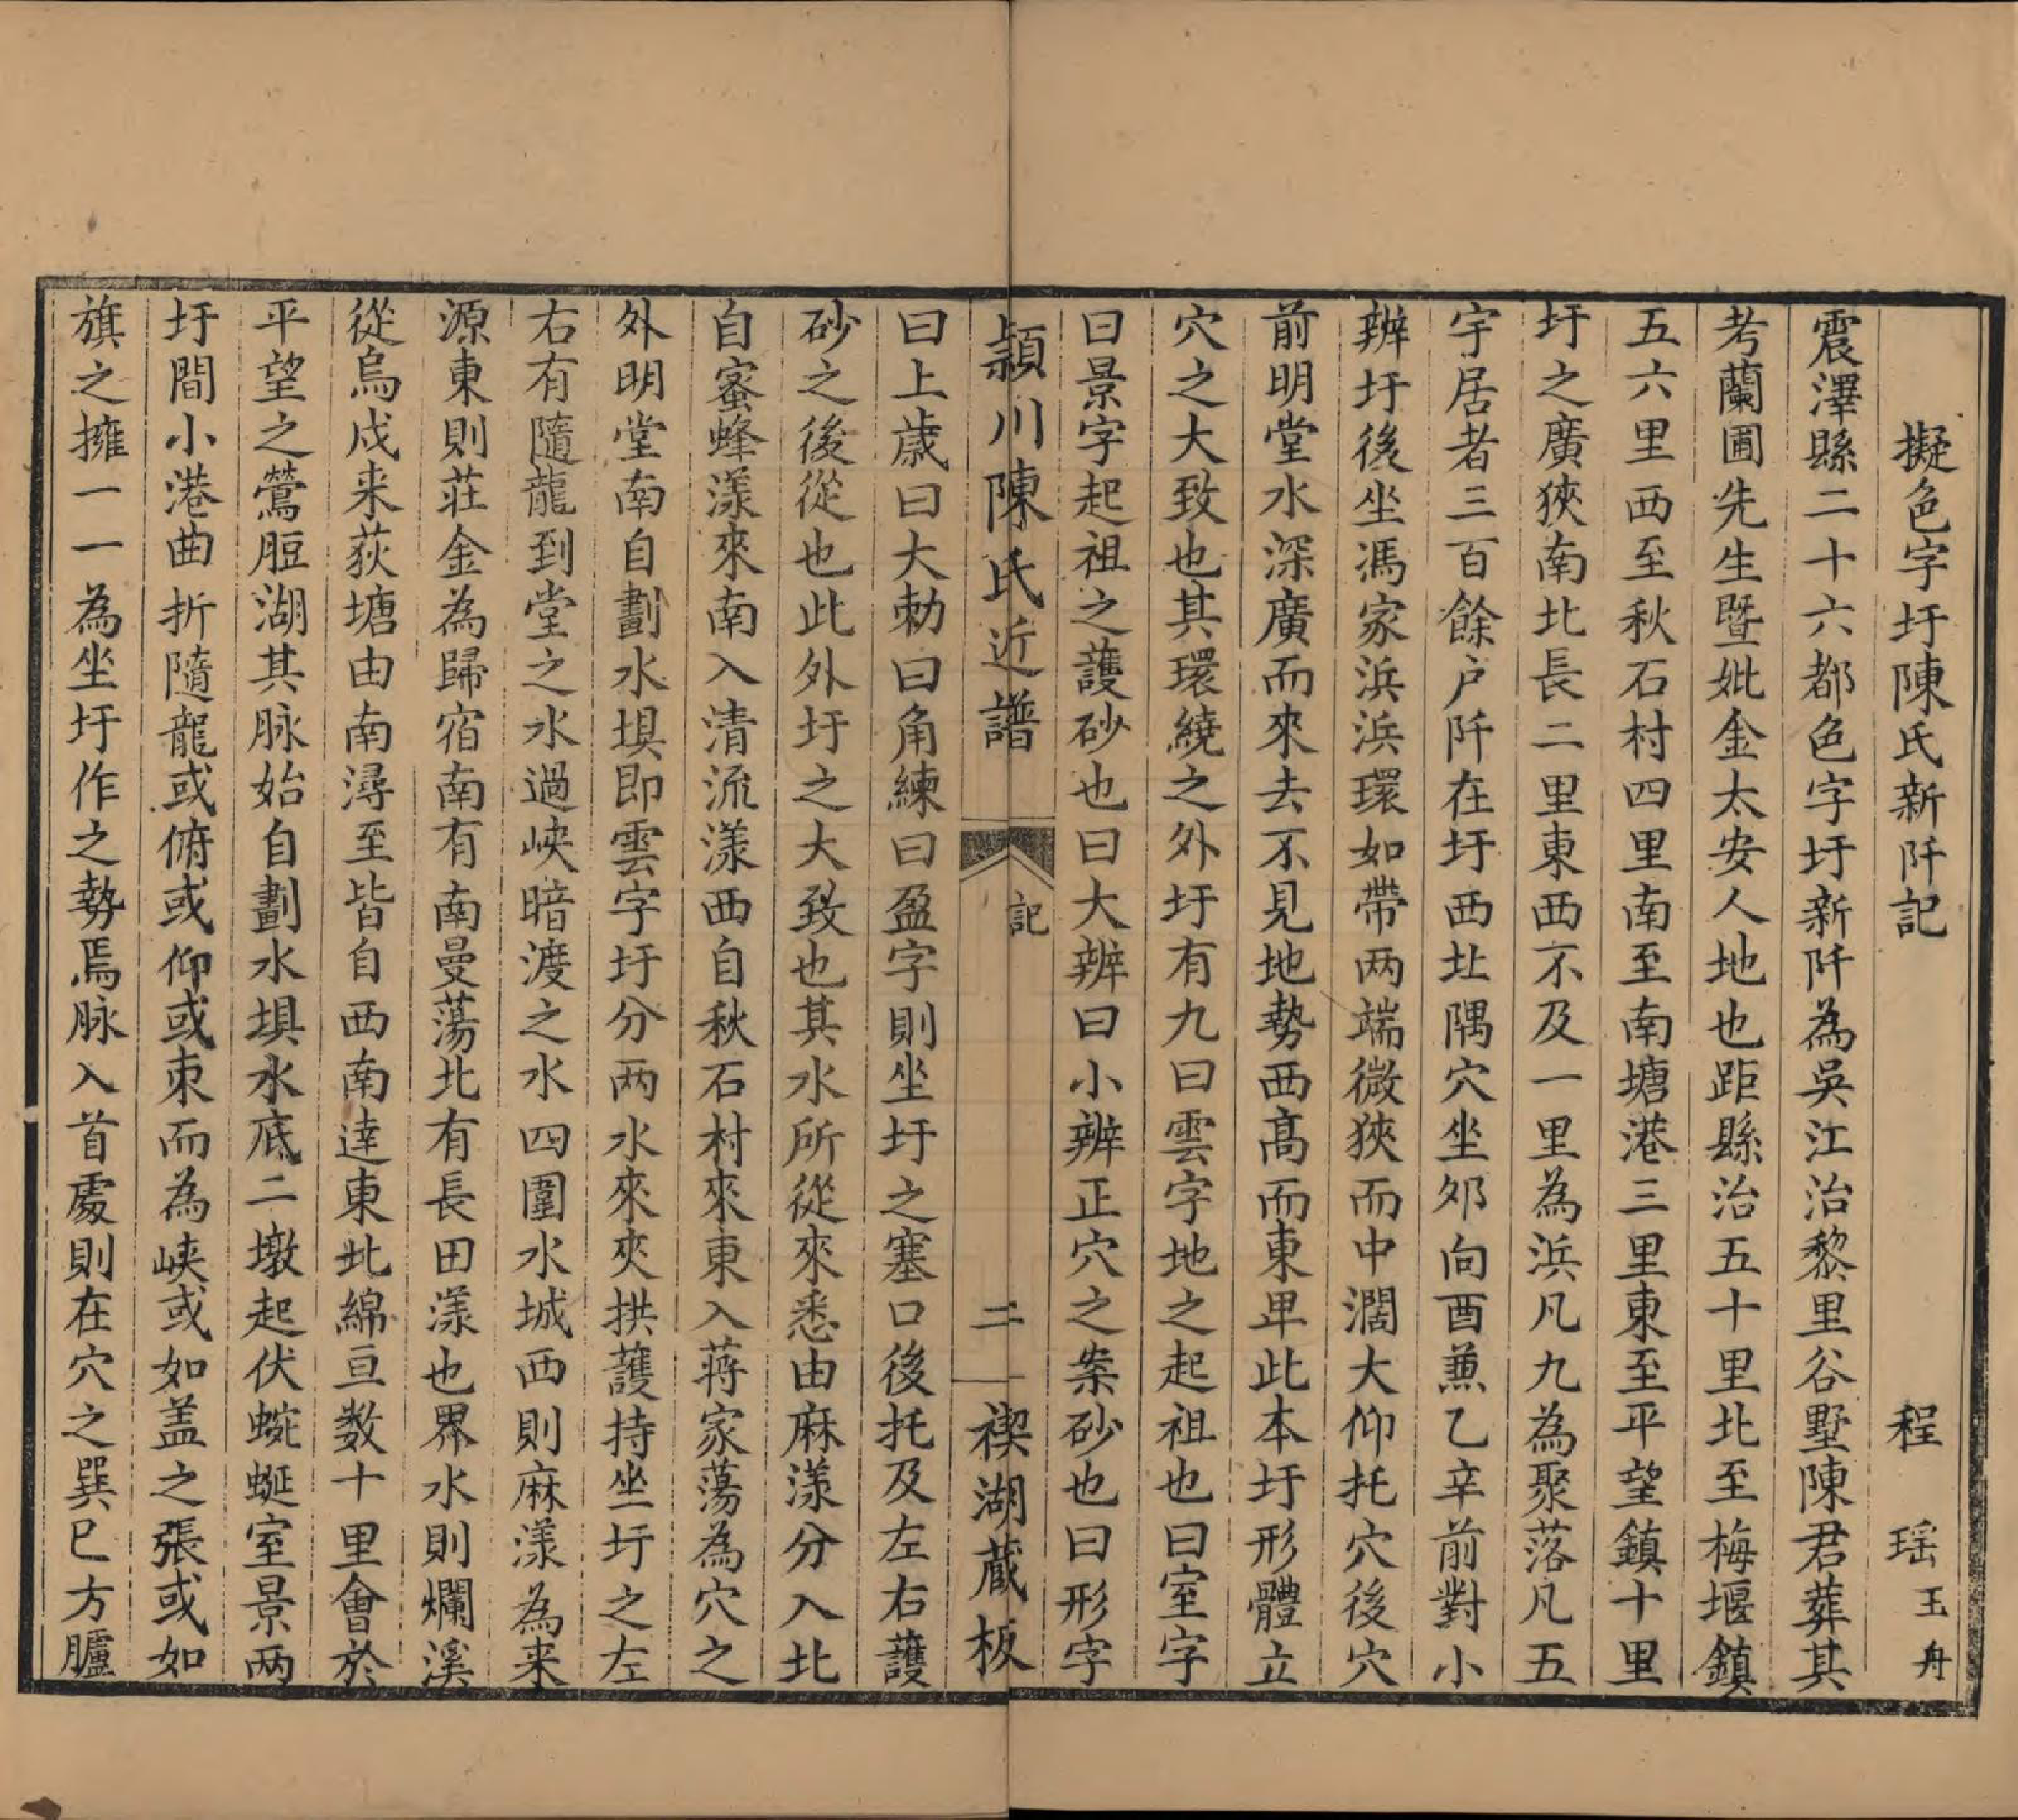 擬色字圩陳氏新阡記　程瑶玉舟
震澤縣二十六都色字圩新阡為吳江治黎里谷墅陳君葬其
考蘭圃先生暨妣金太安人地也距縣治五十里北至梅堰鎮
五六里西至秋石村四里南至南塘港三里東至平望鎮十里
圩之廣狹南北長二里東西不及一里為浜凡九為聚落凡五
宇居者三百餘户阡在圩西北隅穴坐夘向酉兼乙辛前對小
辨圩後坐馮家浜浜環如帶兩端微狹而中濶大仰托穴後穴
前明堂水深廣而來去不見地勢西髙而東卑此本圩形體立
穴之大致也其環繞之外圩有九曰雲字地之起祖也曰室字
曰景字起祖之護砂也曰大辨曰小辨正穴之案砂也曰形字
潁川陳氏近譜　記　二　禊湖藏板
曰上歳曰大勅曰角練曰盈字則坐圩之塞口後托及左右護
砂之後從也此外圩之大致也其水所從來悉由麻漾分入北
自蜜蜂漾來南入清流漾西自秋石村來東入蔣家蕩為穴之
外明堂南自劃水垻即雲字圩分两水來夾拱護持坐圩之左
右有隨龍到堂之水過峽暗渡之水四圍水城西則麻漾為来
源東則莊金為歸宿南有南曼蕩北有長田漾也界水則爛溪
從烏戍来荻塘由南潯至皆自西南逹東北綿亘数十里會於
平望之鶯脰湖其脉始自劃水垻水底二墩起伏蜿蜒室景两
圩間小港曲折隨龍或俯或仰或束而為峽或如盖之張或如
旗之擁一一為坐圩作之勢焉脉入首處則在穴之巽巳方臚